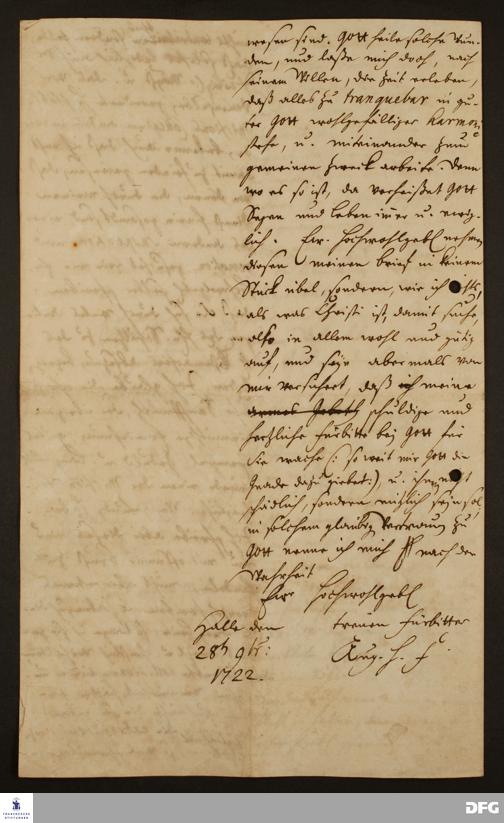 wesen sind. Gott heile solche Wun-
den, und laße mich doch, nach
seinem Willen, die Zeit erleben,
daß alles zu tranquebar in gu-
ter Gott wohlgefälliger harmonie
stehe, u. miteinander zum
gemeinen Zweck arbeite. Denn
wo es so ist, da verheißet Gott
Segen und Leben im̅er u. ewig-
lich. Ew. Hochwohlgebl nehmen
diesen meinen brief in keinem
Stück übel, sondern, wie ich nichts,
als was Christi ist, damit suche,
also in allem wohl und gütig
auf, und seyn abermals von
mir versichert, daß ich meine
armes Gebeth schuldige und
hertzliche fürbitte bey Gott für
Sie wache (: so weit mir Gott die
Gnade dazu giebet:), u. ihnen nicht
schädlich, sondern nützlich seyn sol,
in solchem gläubig Vertrauen zu
Gott nenne ich mich nach der
Wahrheit
Ew Hochwohlgebl
Halle den treuen fürbitter
28 9br: Aug. H. F.
1722.
FRANCKESCHE
STIFTUNGEN
DFG